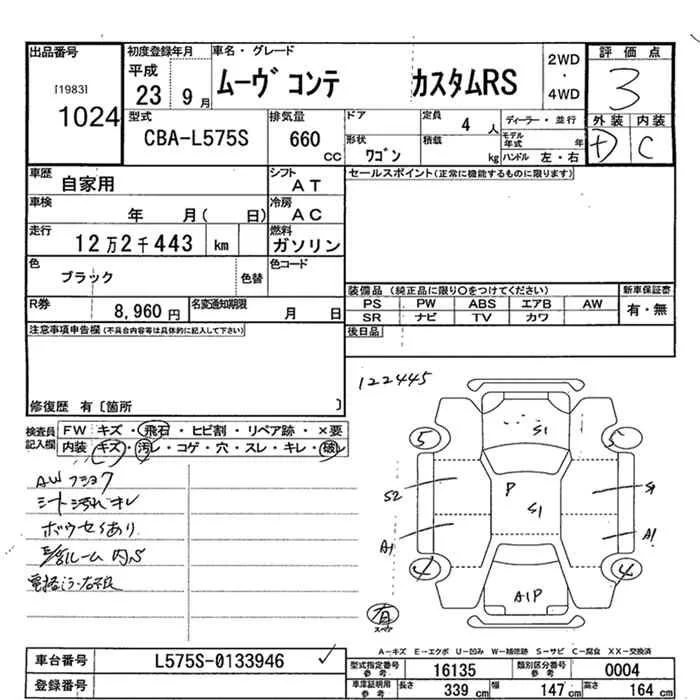 出品番号
[1983]
1024
初度登録年月
平成
23 9月
車名・グレード
ムーヴ コンテ カスタムRS
2WD
・
4WD
評価点
3
外装 内装
D C
型式
CBA-L575S
排気量
660
CC
ドア
形状
ワゴン
定員
4人
積載
kg
ディーラー・並行
モデル年式 年
ハンドル 左・右
車歴
自家用
シフト
AT
車検
年 月( 日)
冷房
AC
走行
12万2千443 km
燃料
ガソリン
色
ブラック
色替
色コード
R券
8,960円
名変通知期限
月 日
セールスポイント(正常に機能するものに限ります)
装備品 (純正品に限り○をつけてください)
新車保証書
PS PW ABS エアB AW
有・無
SR ナビ TV カワ
後日品
注意事項申告欄(不具合内容等は具体的に記入して下さい)
修復歴 有[箇所 ]
検査員記入欄
FW キズ・飛石・ヒビ割・リペア跡・×要
内装 キズ・汚レ・コゲ・穴・スレ・キレ・破レ
AWフショク
シート汚れキレ
ボウセイあり
122445
5
S1
S2
P
S1
S1
A1
A1
4
4
A1P
有
スペア
A-キズ E-エクボ U-凹み W-補修跡 S-サビ C-腐食 XX-交換済
車台番号
L575S-0133946 ✓
登録番号
型式指定番号 参考
16135
類別区分番号 参考
0004
車庫証明用 参考
長さ 339 cm 幅 147 cm 高さ 164 cm